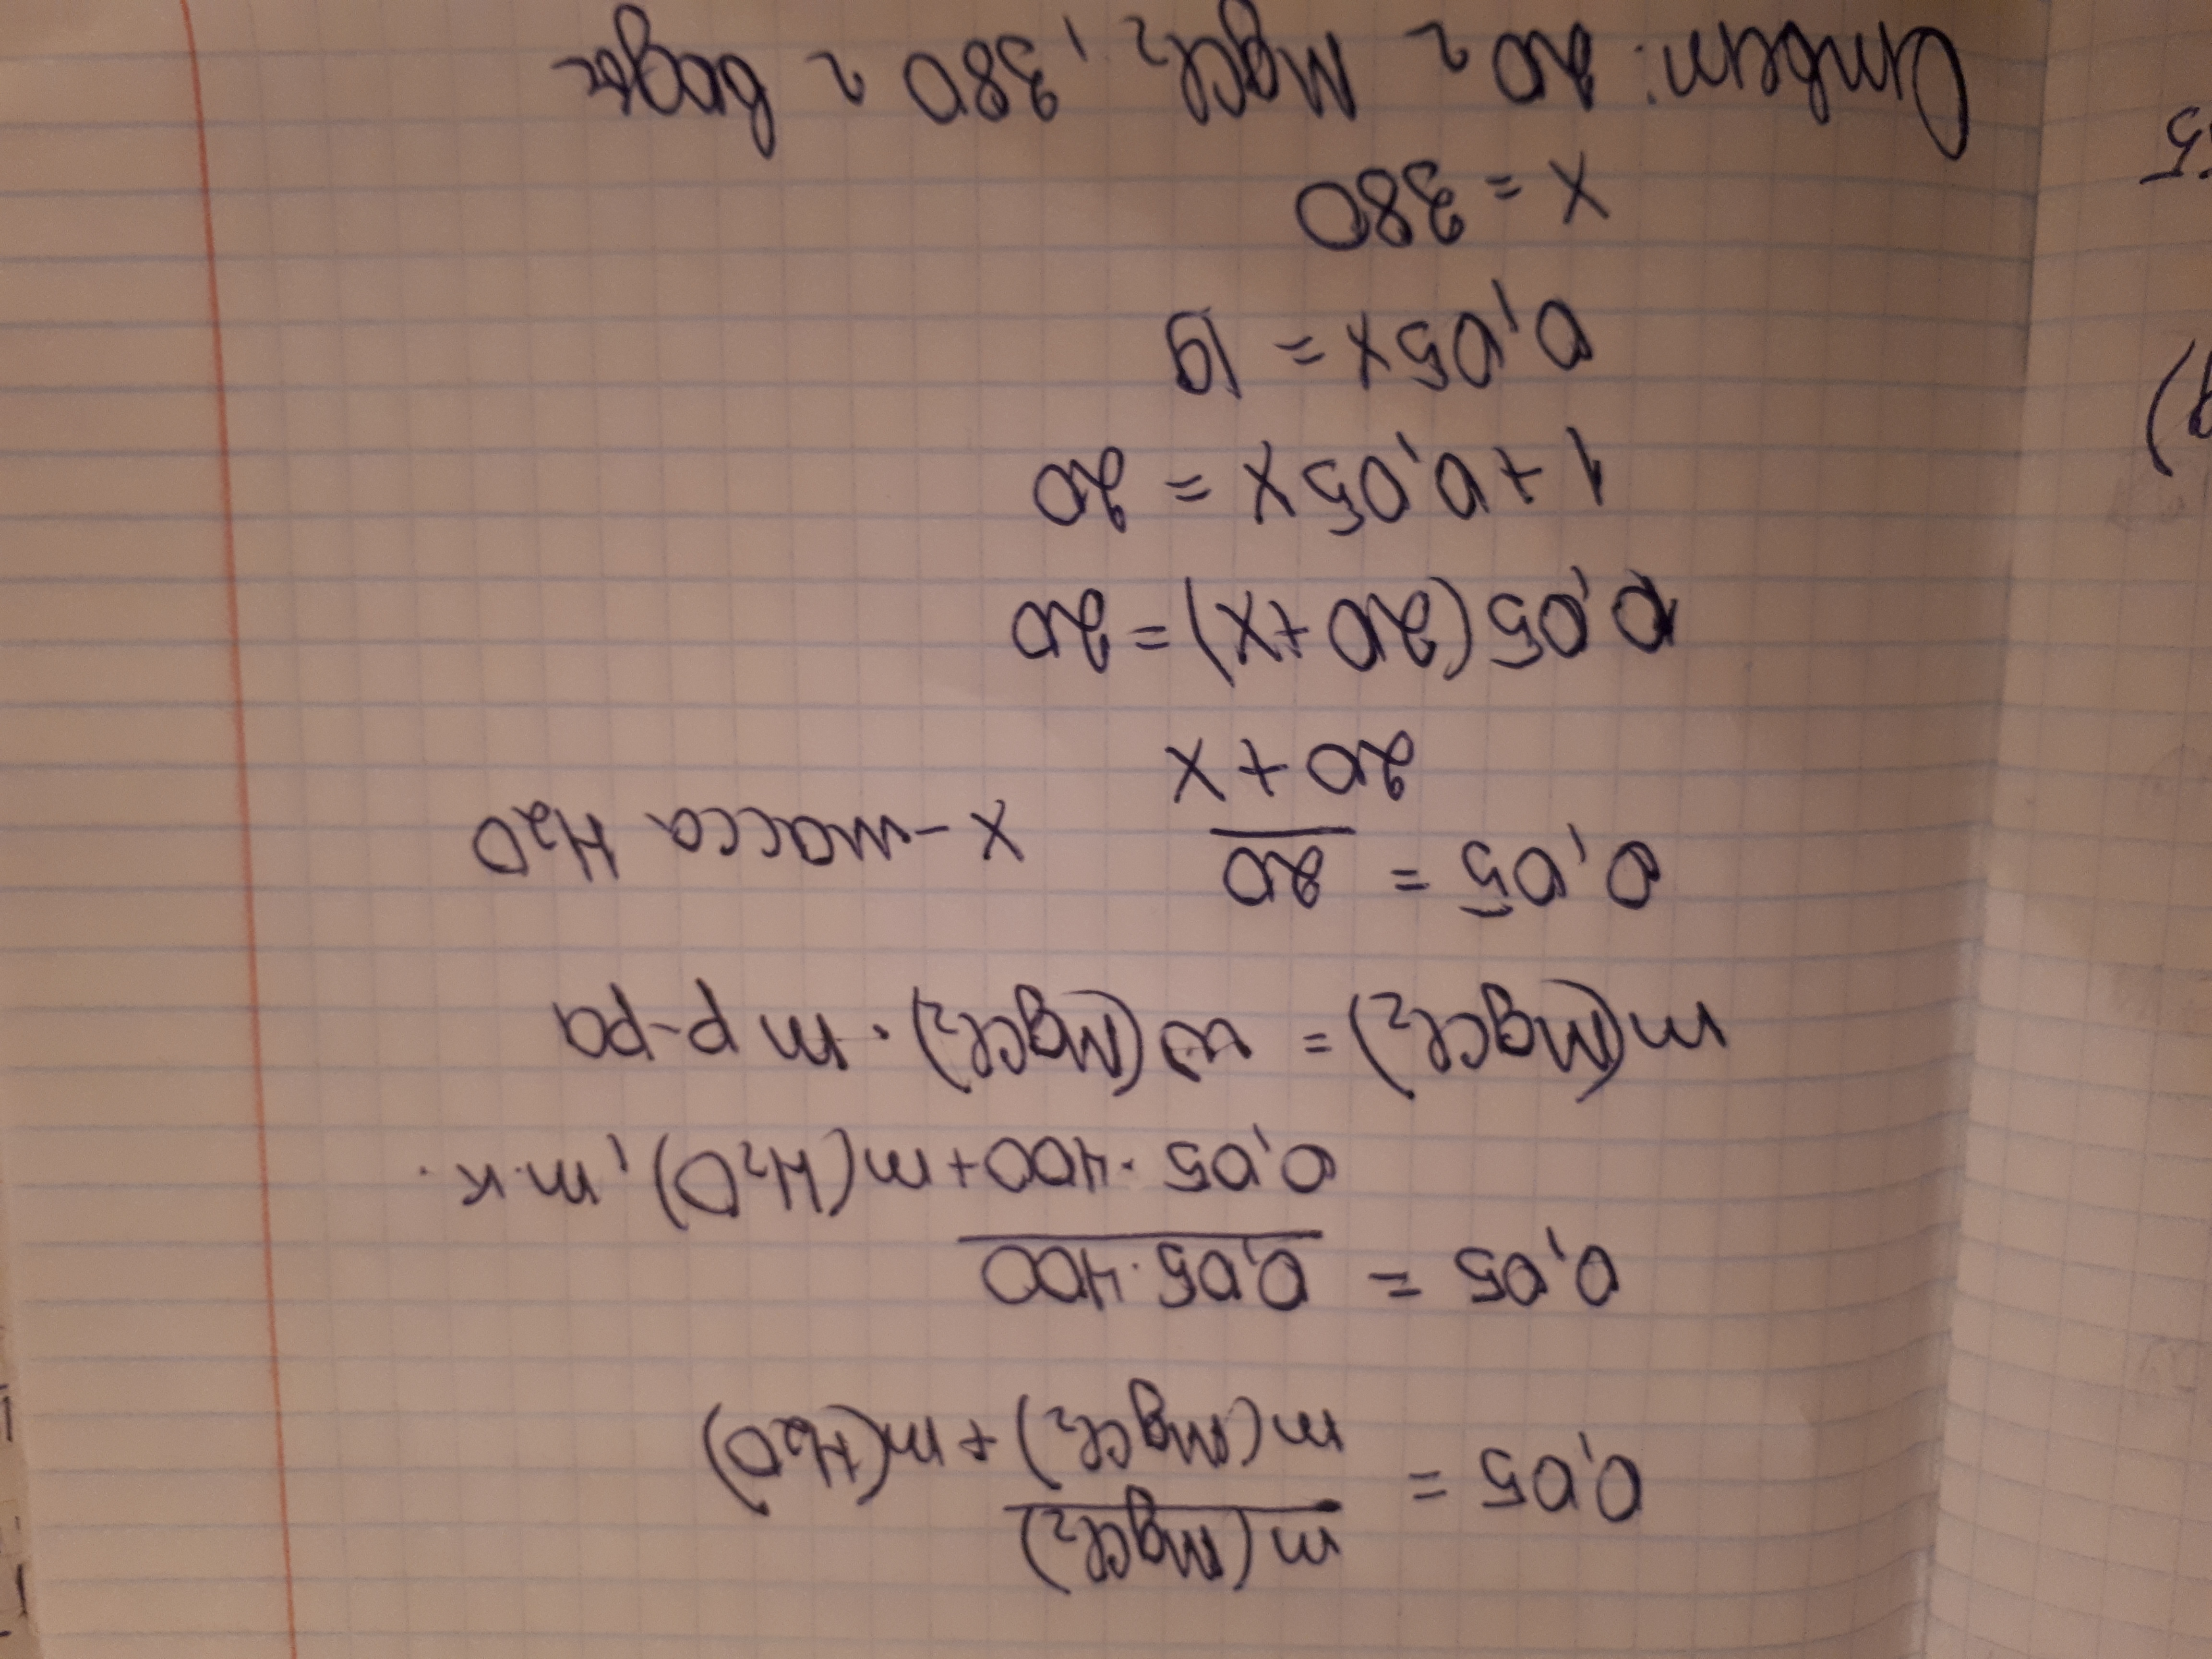 0,05 = m(MgCl₂) / m(MgCl₂) + m(H₂O)
0,05 = 0,05·400 / 0,05·400 + m(H₂O), т.к.
m(MgCl₂) = ω(MgCl₂)·m р-ра
0,05 = 20 / 20 + x   x – масса H₂O
0,05(20+x) = 20
1 + 0,05x = 20
0,05x = 19
x = 380
Ответ: 20 г MgCl₂, 380 г воды